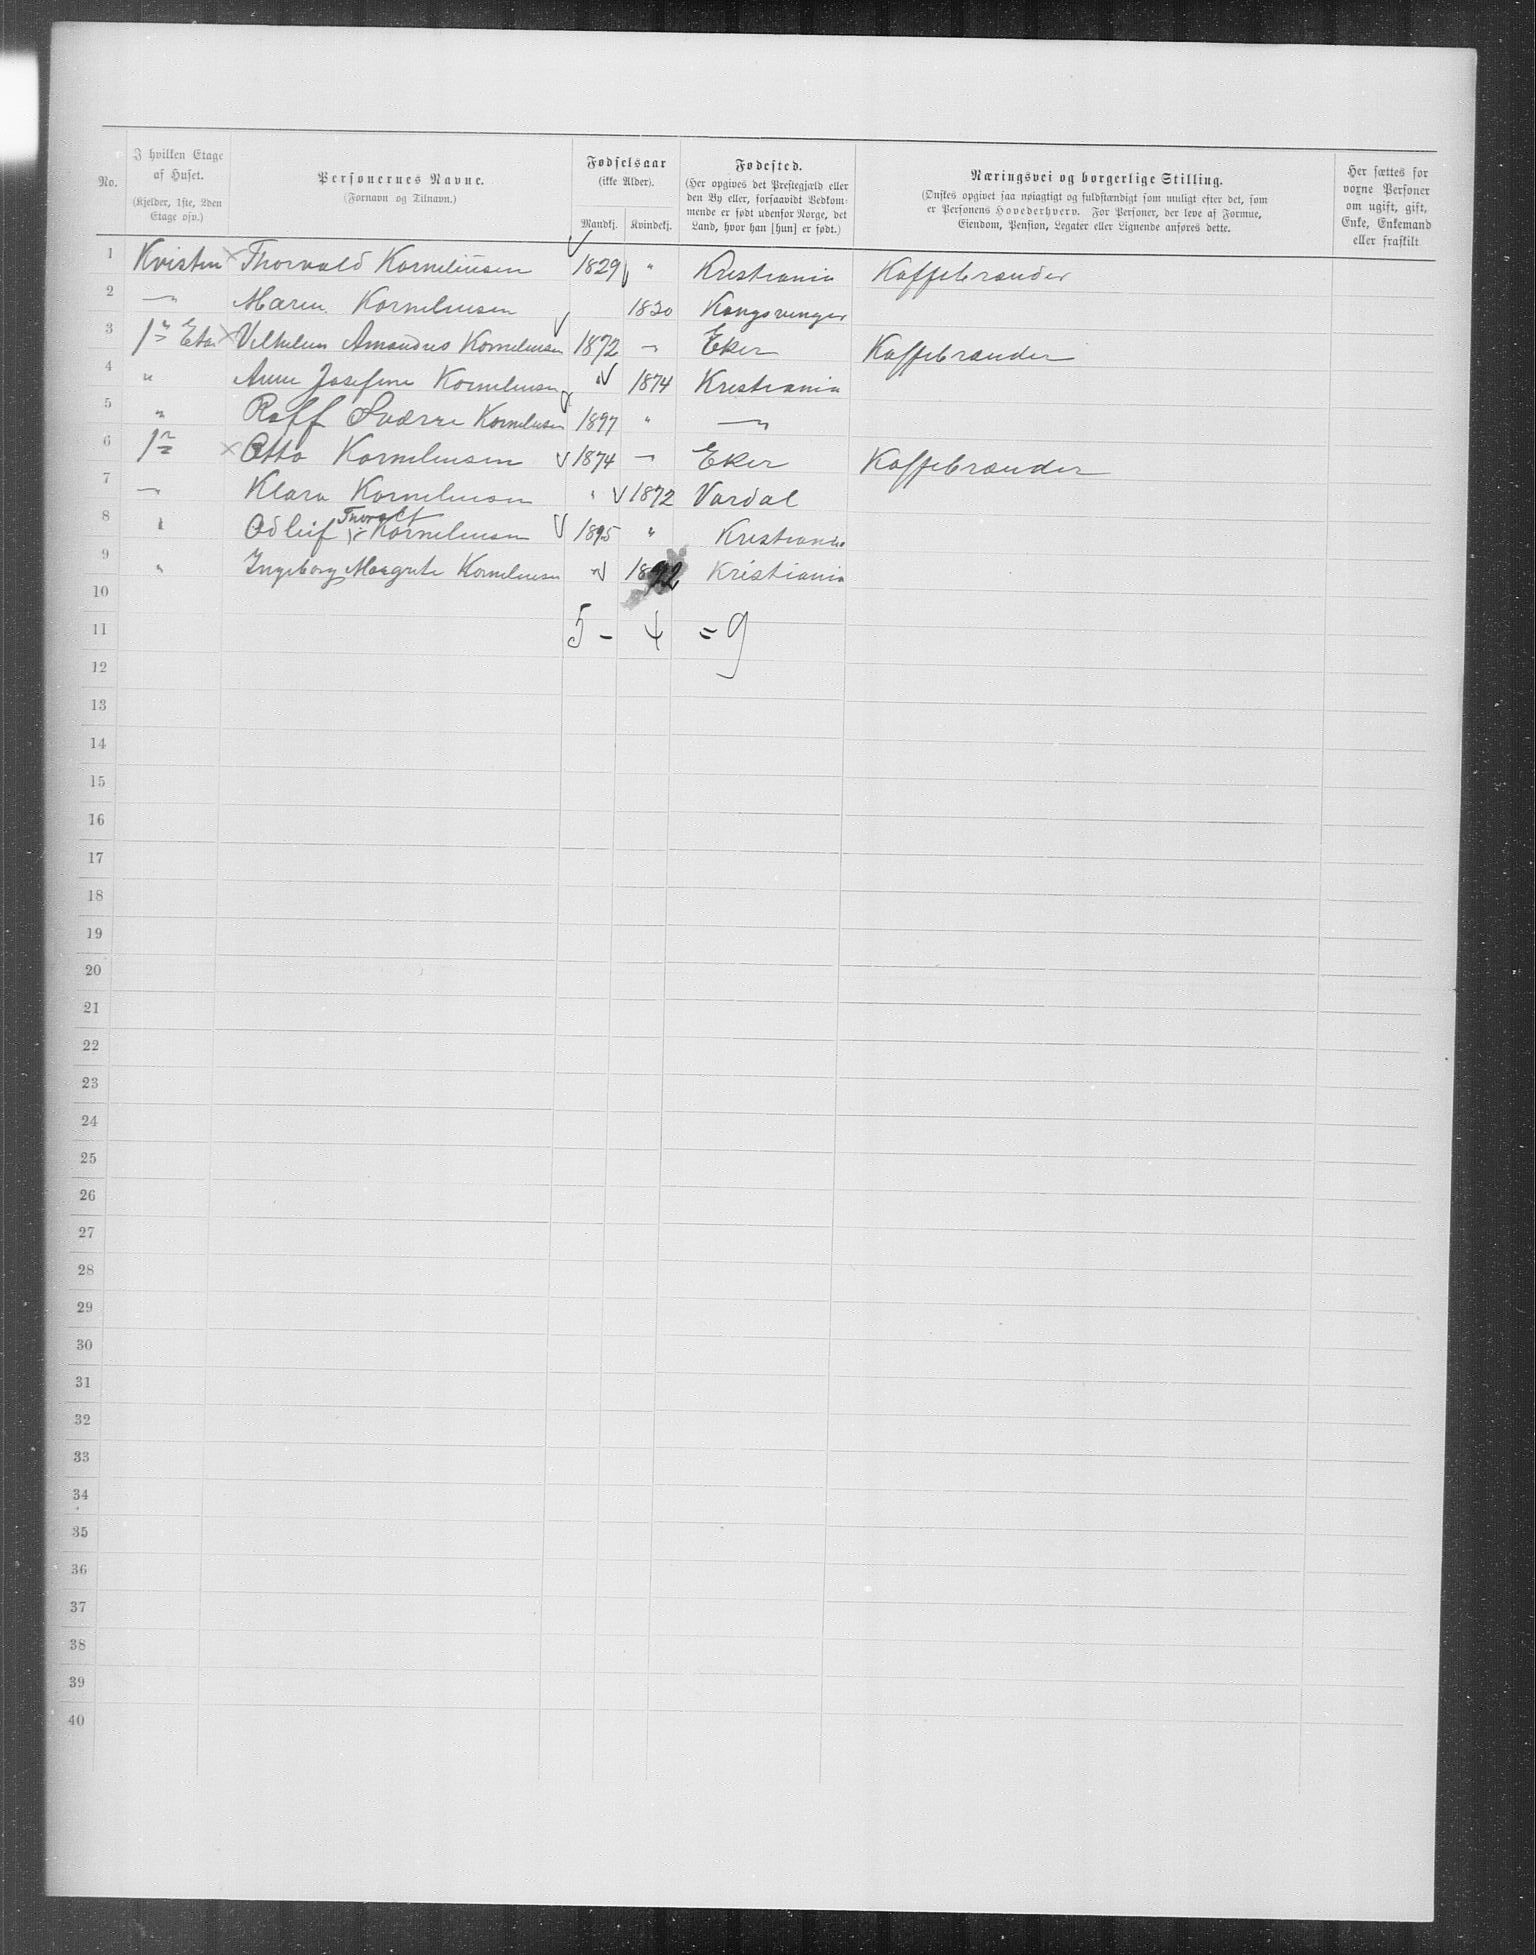 No. | I hvilken Etage af Huset. (Kjelder, 1ste, 2den Etage osv.) | Personernes Navne. (Fornavn og Tilnavn.) | Fødselsaar (ikke Alder). Mandkj. Kvindekj. | Fødested. (Her opgives det Prestegjæld eller den By eller, forsaavidt Vedkommende er født udenfor Norge, det Land, hvor han [hun] er født.) | Næringsvei og borgerlige Stilling. (Ønskes opgivet saa nøiagtigt og fuldstændigt som muligt efter det, som er Personens Hovederhverv. For Personer, der leve af Formue, Eiendom, Pension, Legater eller Lignende anføres dette. | Her sættes for voxne Personer om ugift, gift, Enke, Enkemand eller fraskilt
1 Kvisten × Thorvald Korneliusen √ 1829 " Kristiania Kaffebrander
2 — " Maren Korneliusen 1830 Kongsvinger
3 1ste Eta × Vilhelm Amandus Korneliusen √ 1872 — " Eker Kaffebrænder
4 " Anne Josefine Korneliusen " √ 1874 Kristiania
5 " Rolf Sværre Korneliusen √ 1897 " — "
6 1ste × Otto Korneliusen √ 1874 — " Eker Kaffebrænder
7 — " Klara Korneliusen " √ 1872 Vardal
8 " Odleif Thoralf Korneliusen √ 1895 " Kristiania
9 " Ingeborg Margrete Korneliusen " √ 1892 Kristiania
10
5 - 4 = 9
11
12
13
14
15
16
17
18
19
20
21
22
23
24
25
26
27
28
29
30
31
32
33
34
35
36
37
38
39
40